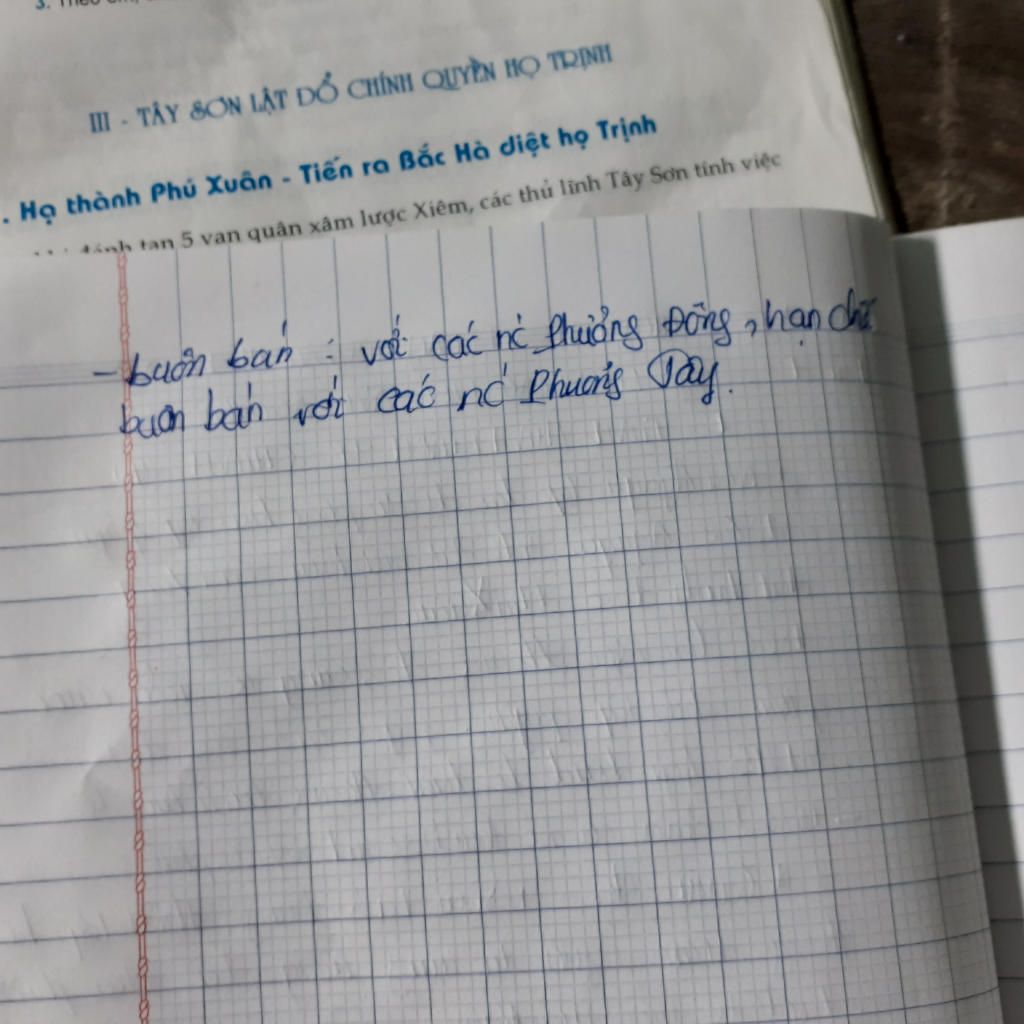 3. Theo
III - TÂY SƠN LẬT ĐỔ CHÍNH QUYỀN HỌ TRỊNH
. Hạ thành Phú Xuân - Tiến ra Bắc Hà diệt họ Trịnh
đánh tan 5 vạn quân xâm lược Xiêm, các thủ lĩnh Tây Sơn tính việc
- buôn bán : với các nc Phương Đông, hạn chế
buôn bán với các nc Phương Tây.